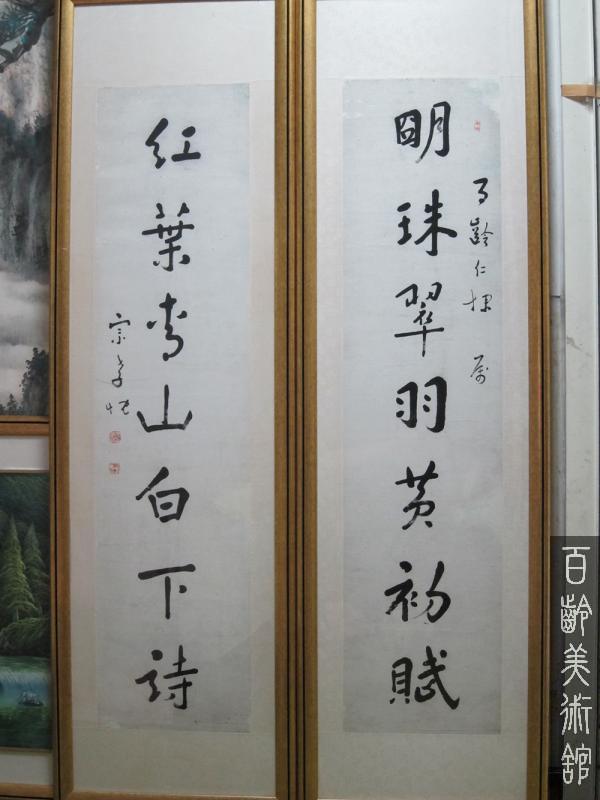 明珠翠羽黃初賦
百齡仁棣 属
紅葉青山白下詩
宗孝忱
百齡美術館